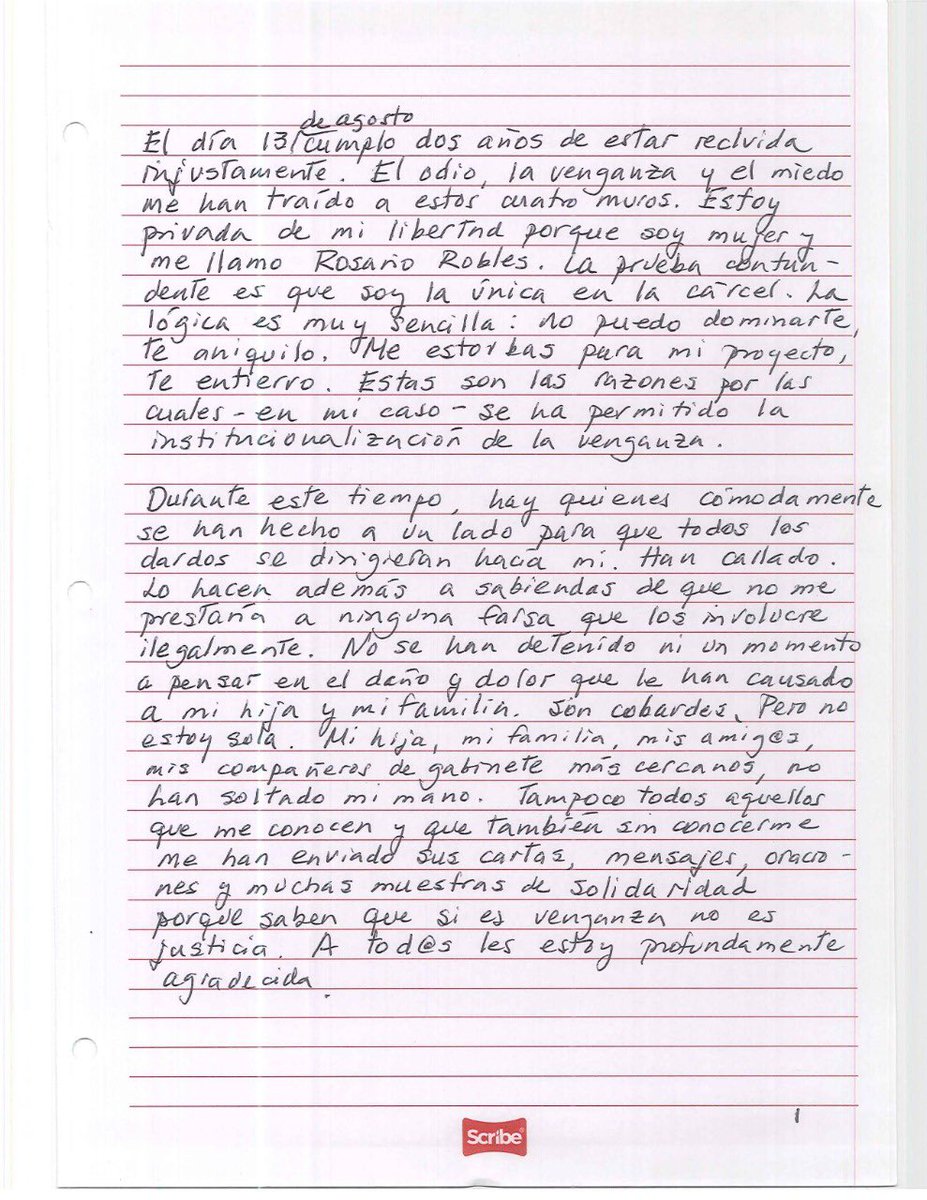 de agosto
El día 13/cumplo dos años de estar recluida
injustamente. El odio, la venganza y el miedo
me han traído a estos cuatro muros. Estoy
privada de mi libertad porque soy mujer y
me llamo Rosario Robles. La prueba contun-
dente es que soy la única en la cárcel. La
lógica es muy sencilla: no puedo dominarte,
te aniquilo. Me estorbas para mi proyecto,
te entierro. Estas son las razones por las
cuales - en mi caso - se ha permitido la
institucionalización de la venganza.
Durante este tiempo, hay quienes cómodamente
se han hecho a un lado para que todos los
dardos se dirigieran hacia mí. Han callado.
Lo hacen además a sabiendas de que no me
prestaría a ninguna farsa que los involucre
ilegalmente. No se han detenido ni un momento
a pensar en el daño y dolor que le han causado
a mi hija y mi familia. Son cobardes. Pero no
estoy sola. Mi hija, mi familia, mis amig@s,
mis compañeros de gabinete más cercanos, no
han soltado mi mano. Tampoco todos aquellos
que me conocen y que también sin conocerme
me han enviado sus cartas, mensajes, oracio-
nes y muchas muestras de solidaridad
porque saben que si es venganza no es
justicia. A tod@s les estoy profundamente
agradecida.
1
Scribe